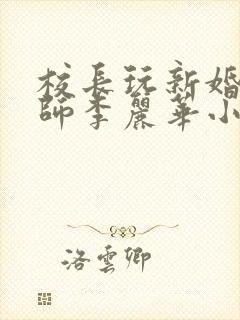 校長玩新婚
師李麗華小
洛雲卿